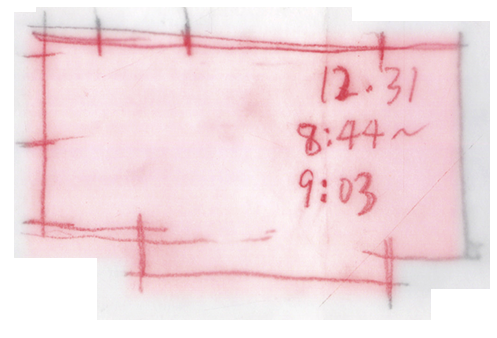 12.31
8:44~
9:03